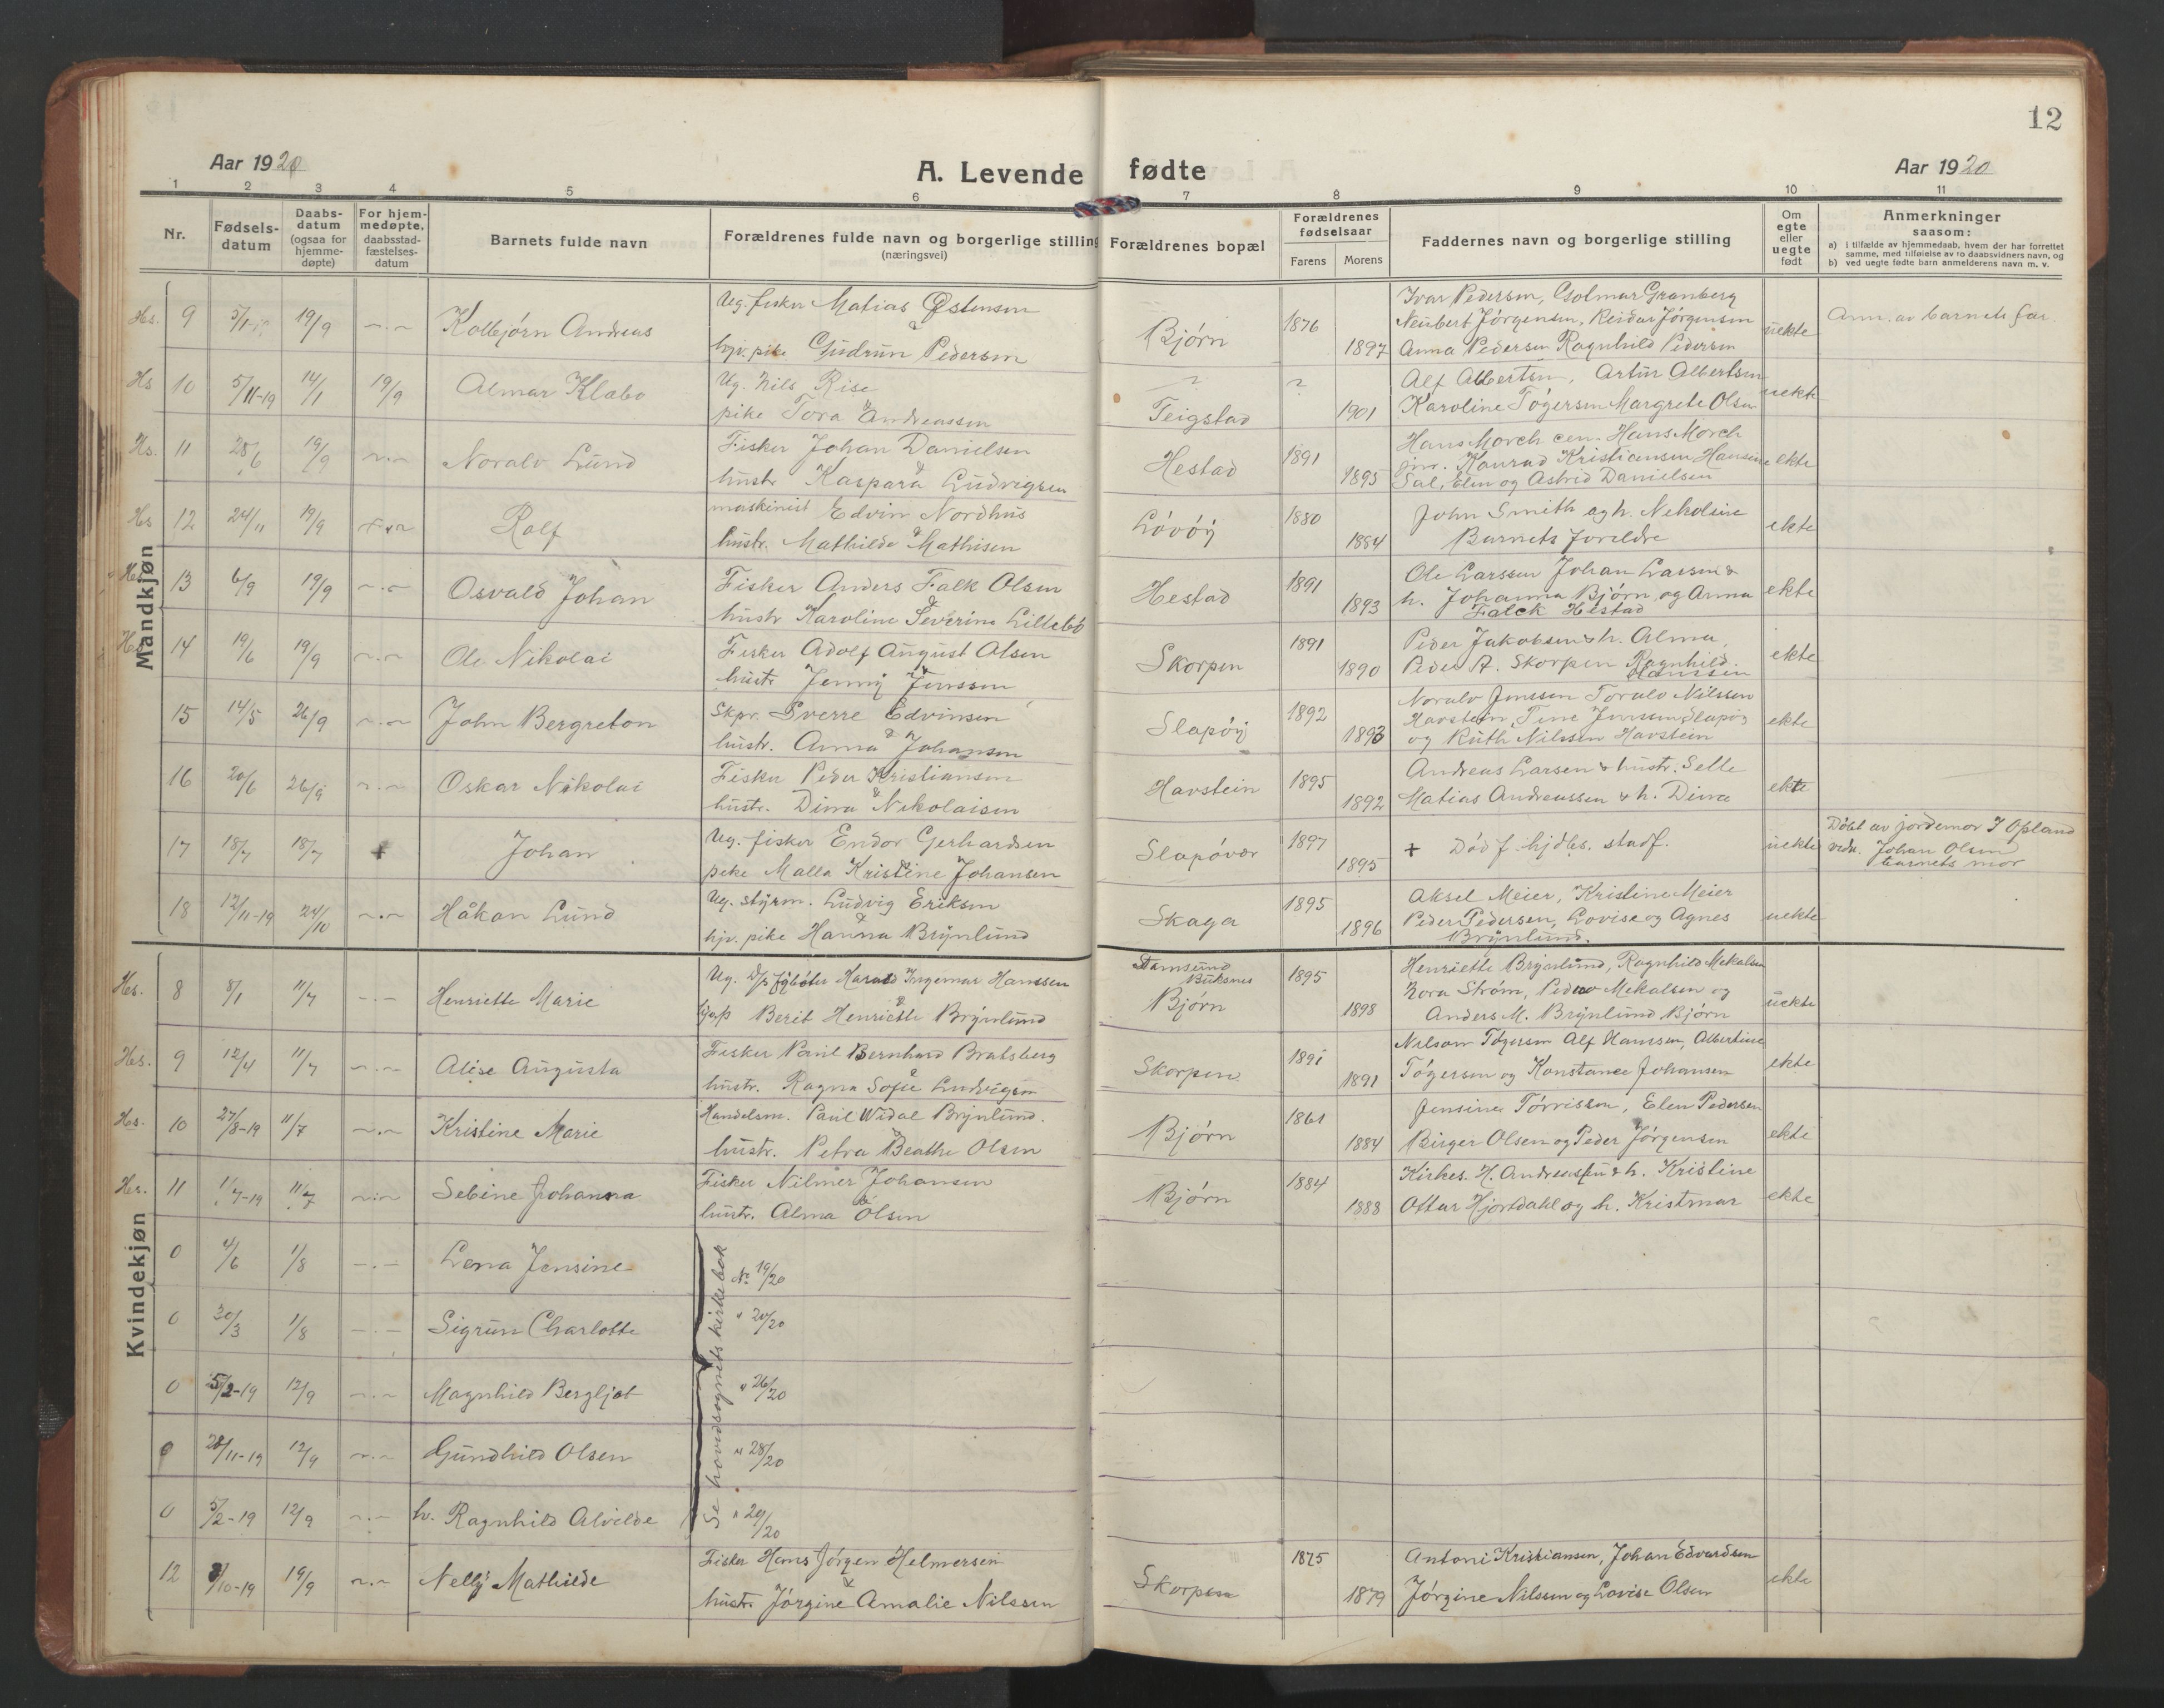 12
Aar 1920
A. Levende fødte
Aar 1920
1 2 3 4 5 6 7 8 9 10 11
Nr.
Fødsels-
datum
Daabs-
datum
(ogsaa for
hjemme-
døpte)
For hjem-
medøpte,
daabsstad-
fæstelses-
datum
Barnets fulde navn
Forældrenes fulde navn og borgerlige stilling
(næringsvei)
Forældrenes bopæl
Forældrenes
fødselsaar
Farens Morens
Faddernes navn og borgerlige stilling
Om
egte
eller
uegte
født
Anmerkninger
saasom:
a) i tilfælde av hjemmedaab, hvem der har forrettet
samme, med tilføielse av to daabsvidners navn, og
b) ved uegte fødte barn anmelderens navn m. v.
Mandkjøn
Hs. 9 19/9 -.- Kolbjørn Andreas
Ug. fisker Matias Østensen
&
pike Gudrun Pedersen
Bjørn 1876 1897
Ivar Pedersen, Golmar Granberg
Neubert Jörgensen, Reidar Jörgensen
Anna Pedersen Ragnhild Pedersen
uekte
Anm. av barnets far.
Hs 10 5/11-19 14/1 19/9 Almar Klabo
Ug. Nils Rise
&
pike Tora Andreassen
? ? Teigstad 1901
Alf Albertsen, Artur Albertsen
Karoline Tögersen Margrete Olsen
uekte
Hs. 11 28/6 19/9 -.- Noralv Lund
Fisker Johan Danielsen
&
hustr Kaspara Ludvigsen
Hestad 1891 1895
Hans Morch sen. Hans Morch
jnr. Konrad Kristiansen Hansine
Sal, Elen og Astrid Danielsen
ekte
Hs 12 24/11 19/9 Rolf
maskinist Edvin Nordhus
&
hustr. Mathilde Mathisen
Lövöy 1880 1884
John Smith og h. Nekoline
Barnets foreldre
ekte
Hs 13 6/9 19/9 -.- Osvald Johan
Fisker Anders Falk Olsen
&
hustr Karoline Severine Lillebö
Hestad 1891 1893
Ole Larssen Johan Lassen &
h. Johanna Bjørn, og Anna
Falck Hestad
ekte
Hs 14 19/6 19/9 -.- Ole Nikolai
Fisker Adolf August Olsen
&
hustr Jenny Jenssen
Skorpen 1891 1890
Peder Jakobsen & h. Alma,
Peder A. Skorpen Ragnhild
Hanssen
ekte
15 14/5 26/9 -.- John Bergreton
Skpr. Sverre Edvinsen
&
hustr. Anna Johansen
Slapöy 1892 1893
Noralv Jenssen Toralv Nilssen
Havstein, Tine Jenssen Slapöy
og Ruth Nilssen Havstein
ekte
16 20/6 26/9 -.- Oskar Nikolai
Fisker Peder Kristiansen
&
hustr. Dina Nikolaisen
Havstein 1895 1892
Andreas Larsen & hustr. Selle
Matias Andreassen & h. Dina
ekte
17 18/7 18/7 + Johan
Ug. fisker Endor Gerhardsen
&
pike Malla Kristine Johansen
Slapövær 1897 1895
+ Död f. hjdbs. stadf.
uekte
Döbt av jordemor J Opland
vidn. Johan Olsen
barnets mor
18 12/11-19 24/10 -.- Håkon Lund
Ug. styrm. Ludvig Eriksen
&
hjv. pike Hanna Brynlund
Skaga 1895 1896
Aksel Meier, Kristine Meier
Peder Pedersen, Lovise og Agnes
Brynlund.
uekte
Kvindekjøn
Hs. 8 8/1 11/7 -.- Henriette Marie
Ug. Harald Ingemar Hanssen
&
Berit Henriette Brynlund
Buksnes
Bjørn 1895 1898
Henriette Brynlund, Ragnhild Mekalsen
Nora Ström, Peder Mekalsen og
Anders M. Brynlund Bjørn
uekte
Hs. 9 12/4 11/7 -.- Alise Augusta
Fisker Paul Bernhard Bratsberg
&
hustr. Ragna Sofie Ludvigsen
Skorpen 1891 1891
Nelson Tögersen Alf Hanssen, Albertine
Tögersen og Konstance Johansen
ekte
Hs. 10 27/8-19 11/7 -.- Kristine Marie
Handelsm. Paul Widal Brynlund.
&
hustr. Petra Beathe Olsen
Bjørn 1861 1884
Jensine Törrissen, Elen Pedersen
Birger Olsen og Peder Jörgensen
ekte
Hs. 11 1/7-19 11/7 -.- Sebine Johanna
Fisker Nilmer Johansen
&
hustr. Alma Olsen
Bjørn 1884 1888
Kirkes. H. Andreassen & h. Kristine
Ottar Hjortdahl og h. Kristmar
ekte
Se hovedsognets kirkebok
0 4/6 1/8 -.- Lena Jensine No 19/20
0 30/3 1/8 -.- Sigrun Charlotte " 20/20
0 5/2-19 12/9 -.- Magnhild Bergljot " 26/20
0 28/11-19 12/9 -.- Gundhild Olsen " 28/20
0 5/2-19 12/9 -.- h. Ragnhild Alvilde " 29/20
12 8/10-19 19/9 -.- Nelly Mathilde
Fisker Hans Jörgen Helmersen
&
hustr. Jörgine Amalie Nilssen
Skorpen 1875 1879
Antoni Kristiansen, Johan Edvardsen
Jörgine Nilssen og Lovise Olsen
ekte